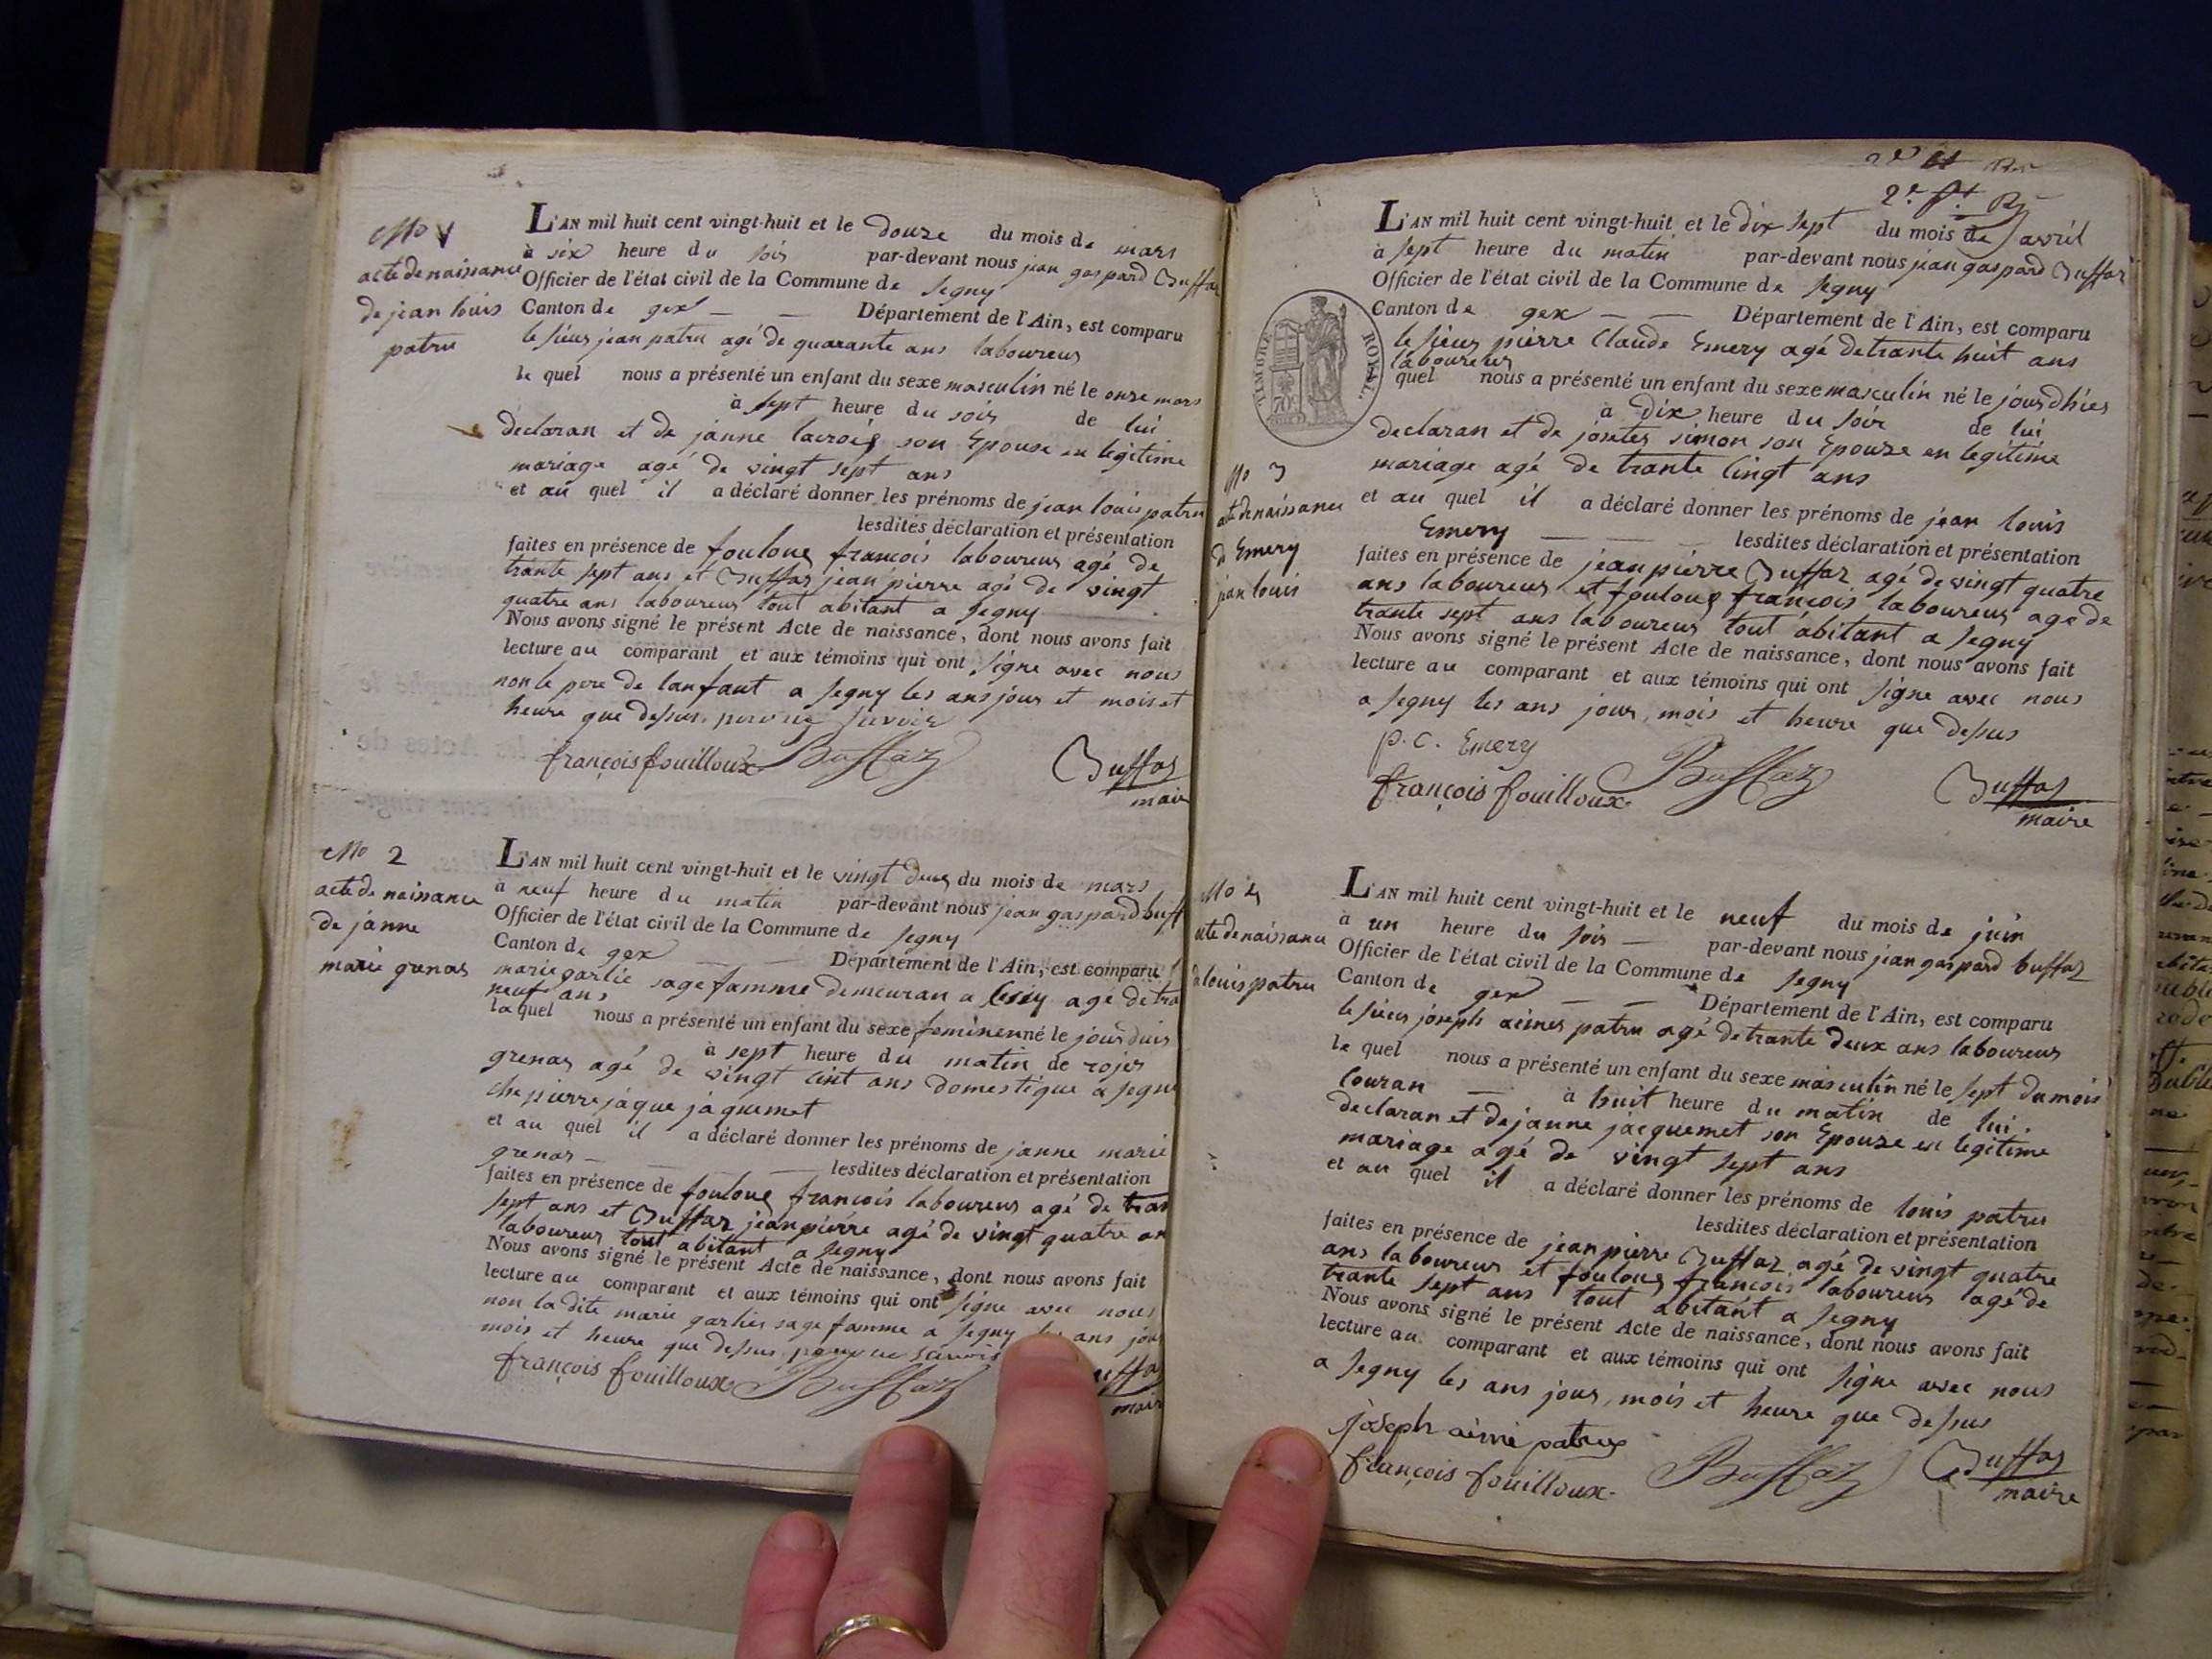 No 1
acte de naissance
de jean louis
patru
L'AN mil huit cent vingt-huit et le douze du mois de mars
à six heure du soir par-devant nous jean gaspard Buffaz
Officier de l'état civil de la Commune de segny
Canton de gex Département de l'Ain, est comparu
le sieur jean patru agé de quarante ans laboureur
le quel nous a présenté un enfant du sexe masculin né le onze mars
à sept heure du soir de lui
declaran et de janne lacroix son Epouse en legitime
mariage agé de vingt sept ans
et au quel il a déclaré donner les prénoms de jean louis patru
lesdites déclaration et présentation
faites en présence de fouloux francois laboureur agé de
trante sept ans et Buffaz jean pierre agé de vingt
quatre ans laboureur tout abitant a segny
Nous avons signé le présent Acte de naissance, dont nous avons fait
lecture au comparant et aux témoins qui ont signe avec nous
non le pere de lanfant a segny les ans jour et mois et
heure que dessus pour ne savoir
françois fouilloux Buffaz Buffaz
maire
No 2
acte de naissance
de janne
marie grenas
L'AN mil huit cent vingt-huit et le vingt deux du mois de mars
à neuf heure du matin par-devant nous jean gaspard buff
Officier de l'état civil de la Commune de segny
Canton de gex Département de l'Ain, est comparu
marie garlie sage famme demeuran a Cessy agé de tra
neuf ans
la quel nous a présenté un enfant du sexe feminen né le jour duis
à sept heure du matin de rojer
grenas agé de vingt cint ans domestique a segny
che pierre jaque jaquemet
et au quel il a déclaré donner les prénoms de janne marie
grenas lesdites déclaration et présentation
faites en présence de fouloux francois laboureur agé de tran
sept ans et Buffaz jean pierre agé de vingt quatre an
laboureur tout abitant a segny
Nous avons signé le présent Acte de naissance, dont nous avons fait
lecture au comparant et aux témoins qui ont signe avec nous
non la dite marie garlier sage famme a segny les ans jour
mois et heure que dessus pour ne savoir
françois fouilloux Buffaz uffaz
maire
2e
TIMBRE ROYAL
70c
No 3
acte de naissance
d Emery
jean louis
L'AN mil huit cent vingt-huit et le dix sept du mois de avril
à sept heure du matin par-devant nous jean gaspard Buffaz
Officier de l'état civil de la Commune de segny
Canton de gex Département de l'Ain, est comparu
le sieur pierre Claude Emery agé de trante huit ans
laboureur
quel nous a présenté un enfant du sexe masculin né le jour dhier
à dix heure du soir de lui
declaran et de josete simon son Epouze en legitime
mariage agé de trante Cingt ans
et au quel il a déclaré donner les prénoms de jean louis
Emery lesdites déclaration et présentation
faites en présence de jean pierre Buffaz agé de vingt quatre
ans laboureur et fouloux françois laboureur agé de
trante sept ans laboureur tout abitant a segny
Nous avons signé le présent Acte de naissance, dont nous avons fait
lecture au comparant et aux témoins qui ont signe avec nous
a segny les ans jour, mois et heure que dessus
p. c. Emery
françois fouilloux Buffaz Buffaz
maire
No 4
acte de naissance
de louis patru
L'AN mil huit cent vingt-huit et le neuf du mois de juin
à un heure du soir par-devant nous jean gaspard buffaz
Officier de l'état civil de la Commune de segny
Canton de gex Département de l'Ain, est comparu
le sieur joseph aimer patru agé de trante deux ans laboureur
le quel nous a présenté un enfant du sexe masculin né le sept du mois
Couran à huit heure du matin de lui
declaran et de janne jacquemet son Epouze en legitime
mariage agé de vingt sept ans
et au quel il a déclaré donner les prénoms de louis patru
lesdites déclaration et présentation
faites en présence de jean pierre Buffaz agé de vingt quatre
ans laboureur et fouloux francois laboureur agé de
trante sept ans tout abitant a segny
Nous avons signé le présent Acte de naissance, dont nous avons fait
lecture au comparant et aux témoins qui ont signe avec nous
a segny les ans jour, mois et heure que dessus
joseph aimé patru
françois fouilloux Buffaz Buffaz
maire